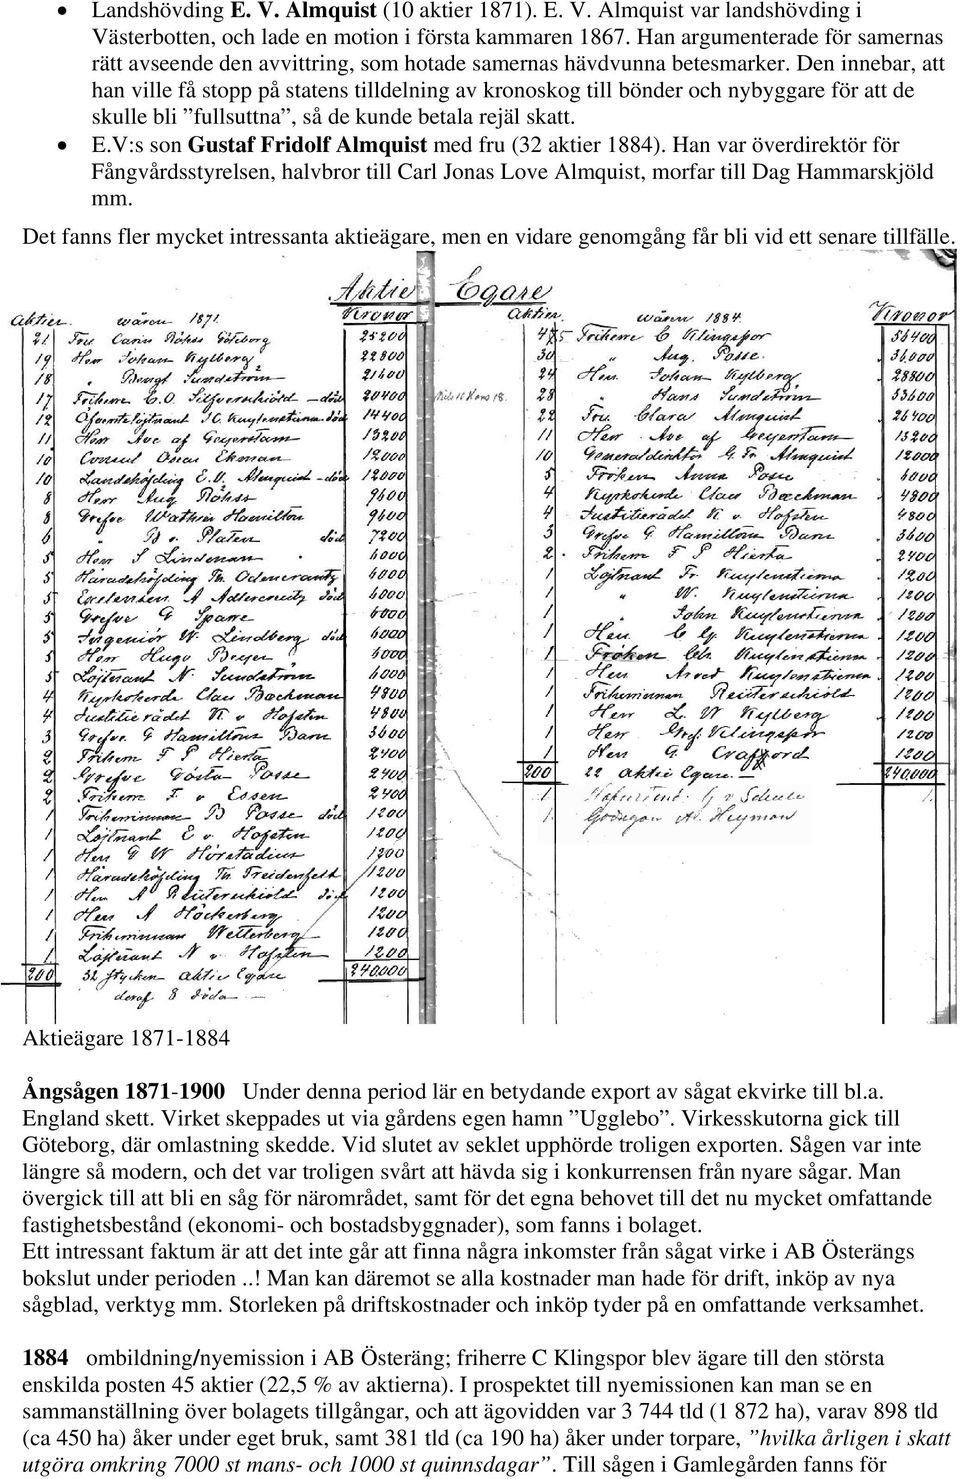 • Landshövding E. V. Almquist (10 aktier 1871). E. V. Almquist var landshövding i
Västerbotten, och lade en motion i första kammaren 1867. Han argumenterade för samernas
rätt avseende den avvittring, som hotade samernas hävdvunna betesmarker. Den innebar, att
han ville få stopp på statens tilldelning av kronoskog till bönder och nybyggare för att de
skulle bli ”fullsuttna”, så de kunde betala rejäl skatt.
• E.V:s son Gustaf Fridolf Almquist med fru (32 aktier 1884). Han var överdirektör för
Fångvårdsstyrelsen, halvbror till Carl Jonas Love Almquist, morfar till Dag Hammarskjöld
mm.
Det fanns fler mycket intressanta aktieägare, men en vidare genomgång får bli vid ett senare tillfälle.
Aktie Egare
Aktier. wåren 1871. Kronor
21 Fru Carin Röhss Göteborg 25200
19 Herr Johan Kylberg 22800
18 " Bengt Sundström 21600
17 Friherre C.O. Silfverschiöld – död 20400
12 Öfverstelöjtnant J C. Kuylenstierna död 14400
11 Herr Ave af Geijerstam 13200
10 Consul Oscar Ekman 12000
10 Landshöfding E.V. Almquist – död 12000
8 Herr Aug Röhss 9600
8 Grefve Walther Hamilton 9600
6 " B v. Platen död 7200
5 Herr S Lindeman 6000
5 Häradshöfding Th. Odencrantz 6000
5 Excelensen A Adlercreutz död 6000
5 Grefve G Sparre 6000
5 Ingeniör W. Lindberg död 6000
5 Herr Hugo Beyer 6000
5 Löjtnant N. Sundström 6000
4 Kyrkoherde Claes Bæckman 4800
4 Justitierådet K. v Hofsten 4800
3 Grefve G Hamiltons Barn 3600
2 Friherre F P Hierta 2400
2 Grefve Gösta Posse 2400
2 Friherre F. v Essen 2400
1 Friherrinnan B Posse död 1200
1 Löjtnant E v. Hofsten 1200
1 Herr G W Hörstadius 1200
1 Häradshöfding Th. Treidenfelt 1200
1 Herr A Reuterschiold död 1200
1 Herr A Höckerberg 1200
1 Friherrinnan Wetterberg 1200
1 Löjtnant N v. Hofsten 1200
200 32 stycken aktie Egare 240,000
deraf 8 döda
Aktier. wåren 1884. Kronor
45 Friherre C Klingspor 56400
30 " Aug. Posse. 36,000
24 Herr. Johan Kylberg 28800
28 " Hans Sundström 33600
22 Fru. Clara Almquist 26400
11 Herr Ave af Geijerstam 13200
10 Generaldirektör G. Fr Almquist 12000
5 Fröken Anna Posse 6000
4 Kyrkoherde Claes Bæckman 4800
4 Justitierådet K v. Hofsten 4800
3 Grefve G Hamiltons Barn 3600
2 Friherre F P Hierta 2400
1 Löjtnant Fr Kuylenstierna 1200
1 " W. Kuylenstierna 1200
1 " John Kuylenstierna 1200
1 Herr. C G Kuylenstierna 1200
1 Fröken Kuylenstierna 1200
1 Herr Arved Kuylenstierna 1200
1 Friherrinnan Reuterschiold 1200
1 Herr L. W Kylberg 1200
1 Herr Klingspor 1200
1 Herr G. Crafoord 1200
200 22 aktie Egare. 240,000
Aktieägare 1871-1884
Ångsågen 1871-1900 Under denna period lär en betydande export av sågat ekvirke till bl.a.
England skett. Virket skeppades ut via gårdens egen hamn ”Ugglebo”. Virkesskutorna gick till
Göteborg, där omlastning skedde. Vid slutet av seklet upphörde troligen exporten. Sågen var inte
längre så modern, och det var troligen svårt att hävda sig i konkurrensen från nyare sågar. Man
övergick till att bli en såg för närområdet, samt för det egna behovet till det nu mycket omfattande
fastighetsbestånd (ekonomi- och bostadsbyggnader), som fanns i bolaget.
Ett intressant faktum är att det inte går att finna några inkomster från sågat virke i AB Österängs
bokslut under perioden ..! Man kan däremot se alla kostnader man hade för drift, inköp av nya
sågblad, verktyg mm. Storleken på driftskostnader och inköp tyder på en omfattande verksamhet.
1884 ombildning/nyemission i AB Österäng; friherre C Klingspor blev ägare till den största
enskilda posten 45 aktier (22,5 % av aktierna). I prospektet till nyemissionen kan man se en
sammanställning över bolagets tillgångar, och att ägovidden var 3 744 tld (1 872 ha), varav 898 tld
(ca 450 ha) åker under eget bruk, samt 381 tld (ca 190 ha) åker under torpare, ”hvilka årligen i skatt
utgöra omkring 7000 st mans- och 1000 st quinnsdagar”. Till sågen i Gamlegården fanns för